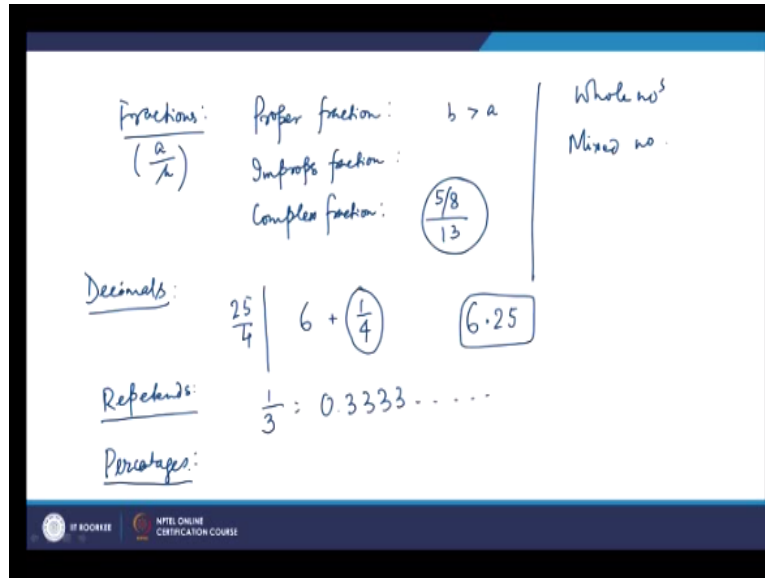 Fractions: Proper fraction: b > a
(a/b) Improper fraction:
Complex fraction: 5/8 / 13
Whole no's
Mixed no.
Decimals: 25/4 | 6 + 1/4 6.25
Repetends: 1/3 : 0.3333.....
Percentages:
IIT ROORKEE NPTEL ONLINE
CERTIFICATION COURSE